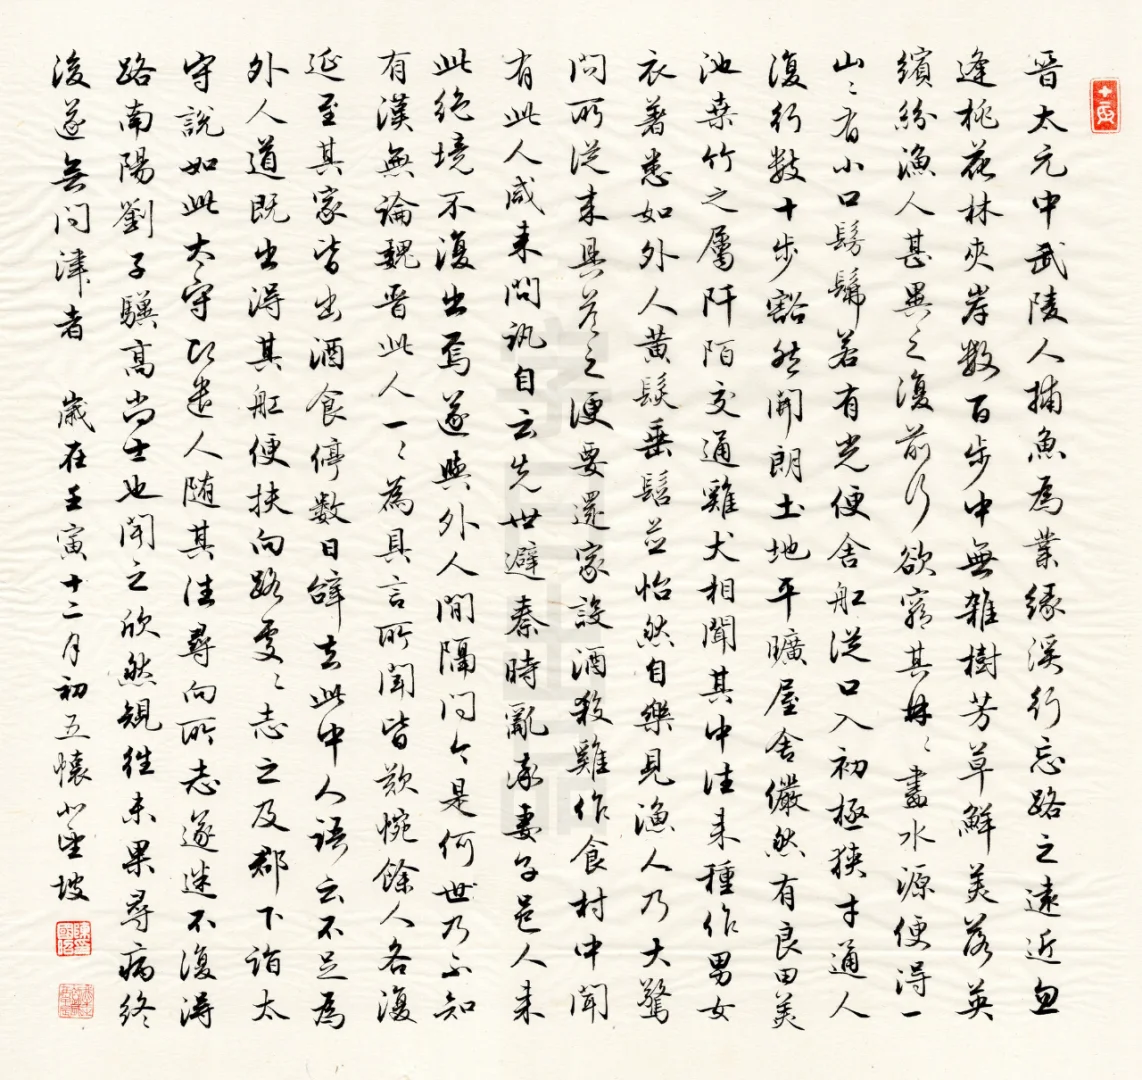 晉太元中武陵人捕魚為業緣溪行忘路之遠近忽
逢桃花林夾岸數百步中無雜樹芳草鮮美落英
繽紛漁人甚異之復前行欲窮其林〻盡水源便得一
山〻有小口髣髴若有光便舍舡從口入初極狹才通人
復行數十步豁然開朗土地平曠屋舍儼然有良田美
池桑竹之屬阡陌交通雞犬相聞其中往來種作男女
衣著悉如外人黃髮垂髫並怡然自樂見漁人乃大驚
問所從來具答之便要還家設酒殺雞作食村中聞
有此人咸來問訊自云先世避秦時亂率妻子邑人來
此絕境不復出焉遂與外人間隔問今是何世乃不知
有漢無論魏晉此人一〻為具言所聞皆歎惋餘人各復
延至其家皆出酒食停數日辭去此中人語云不足為
外人道既出得其舡便扶向路處〻志之及郡下詣太
守說如此太守即遣人随其往尋向所志遂迷不復得
路南陽劉子驥高尚士也聞之欣然規往未果尋病終
後遂無問津者 歲在壬寅十二月初五懷